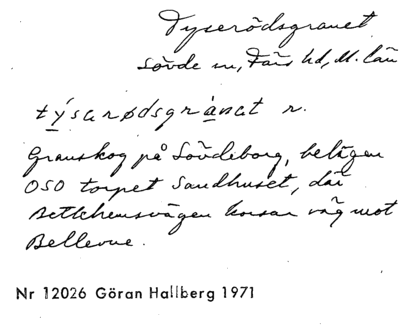 Tyserödsgranet
Sövde sn, Färs hd, M. län
týsarødsgrànat n.
Granskog på Sövdeborg, belägen
OSO torpet Sandhuset, där
Betlehemsvägen korsar väg mot
Bellevue.
Nr 12026 Göran Hallberg 1971